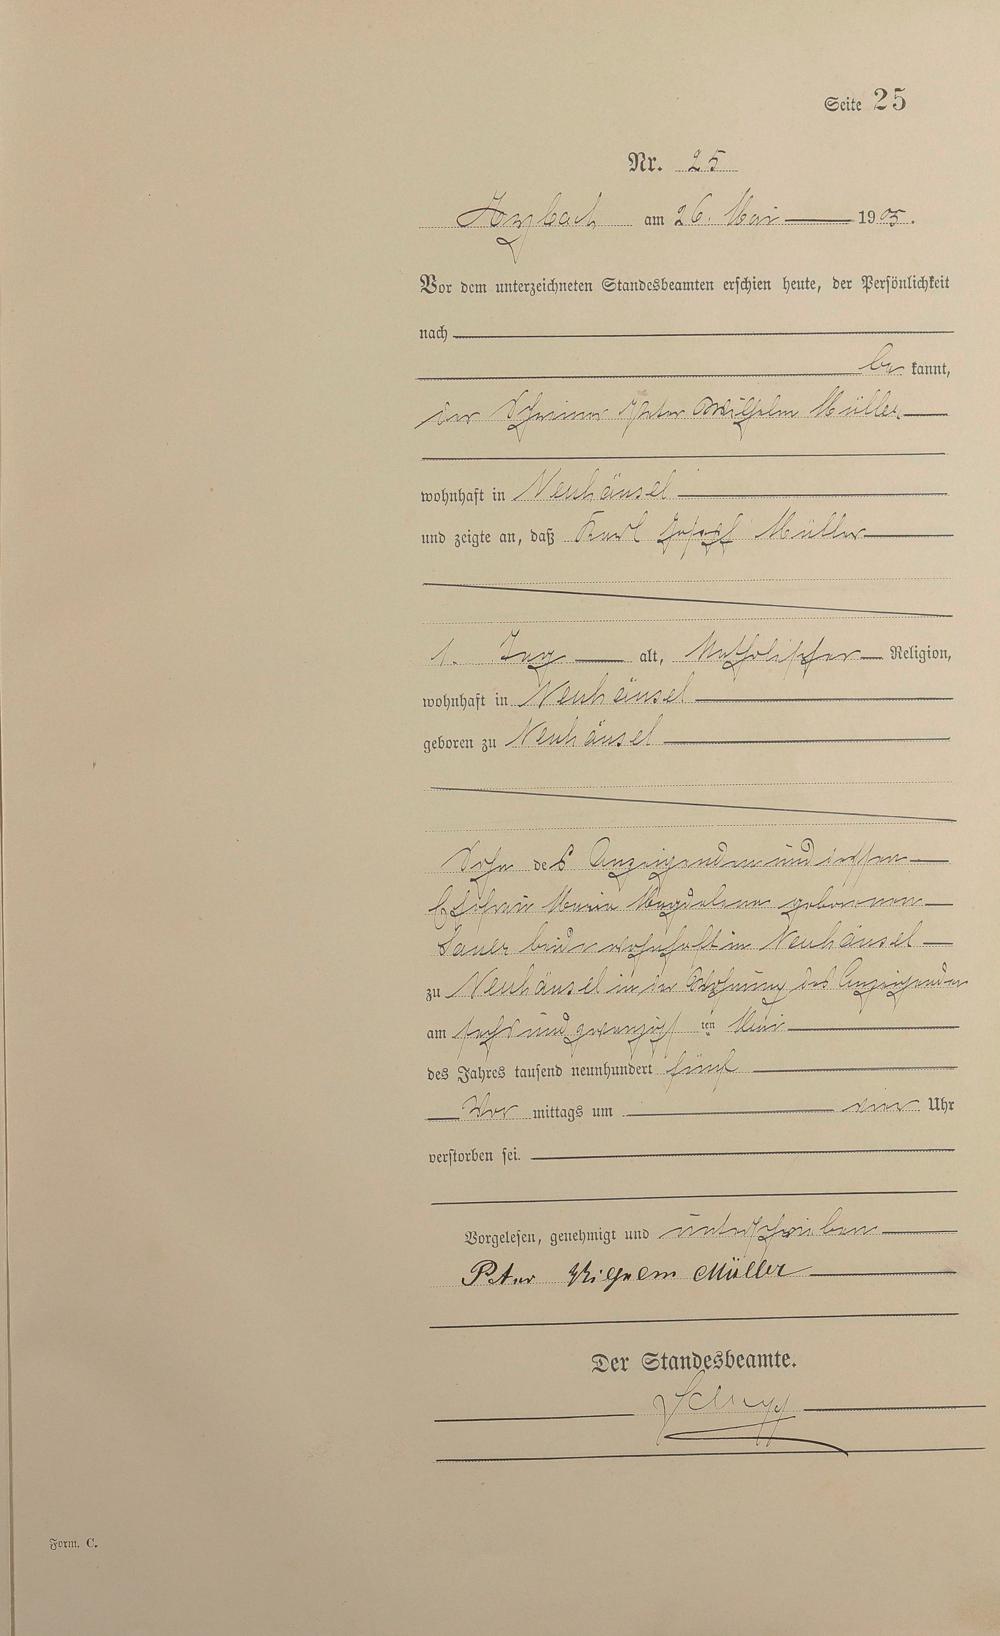 Seite 25
Nr. 25
Arzbach am 26. Mai 1905.
Vor dem unterzeichneten Standesbeamten erschien heute, der Persönlichkeit
nach
be kannt,
der Schreiner Peter Wilhelm Müller
wohnhaft in Neuhäusel
und zeigte an, daß Karl Josef Müller
1. Tag alt, katholischer Religion,
wohnhaft in Neuhäusel
geboren zu Neuhäusel
Sohn des Anzeigenden und dessen
Ehefrau Maria Magdalena geborenen
Sauer beide wohnhaft in Neuhäusel
zu Neuhäusel in der Wohnung des Anzeigenden
am sechsundzwanzigsten Mai
des Jahres tausend neunhundert fünf
Vor mittags um vier Uhr
verstorben sei.
Vorgelesen, genehmigt und unterschrieben
Peter Wilhelm Müller
Der Standesbeamte.
Form. C.